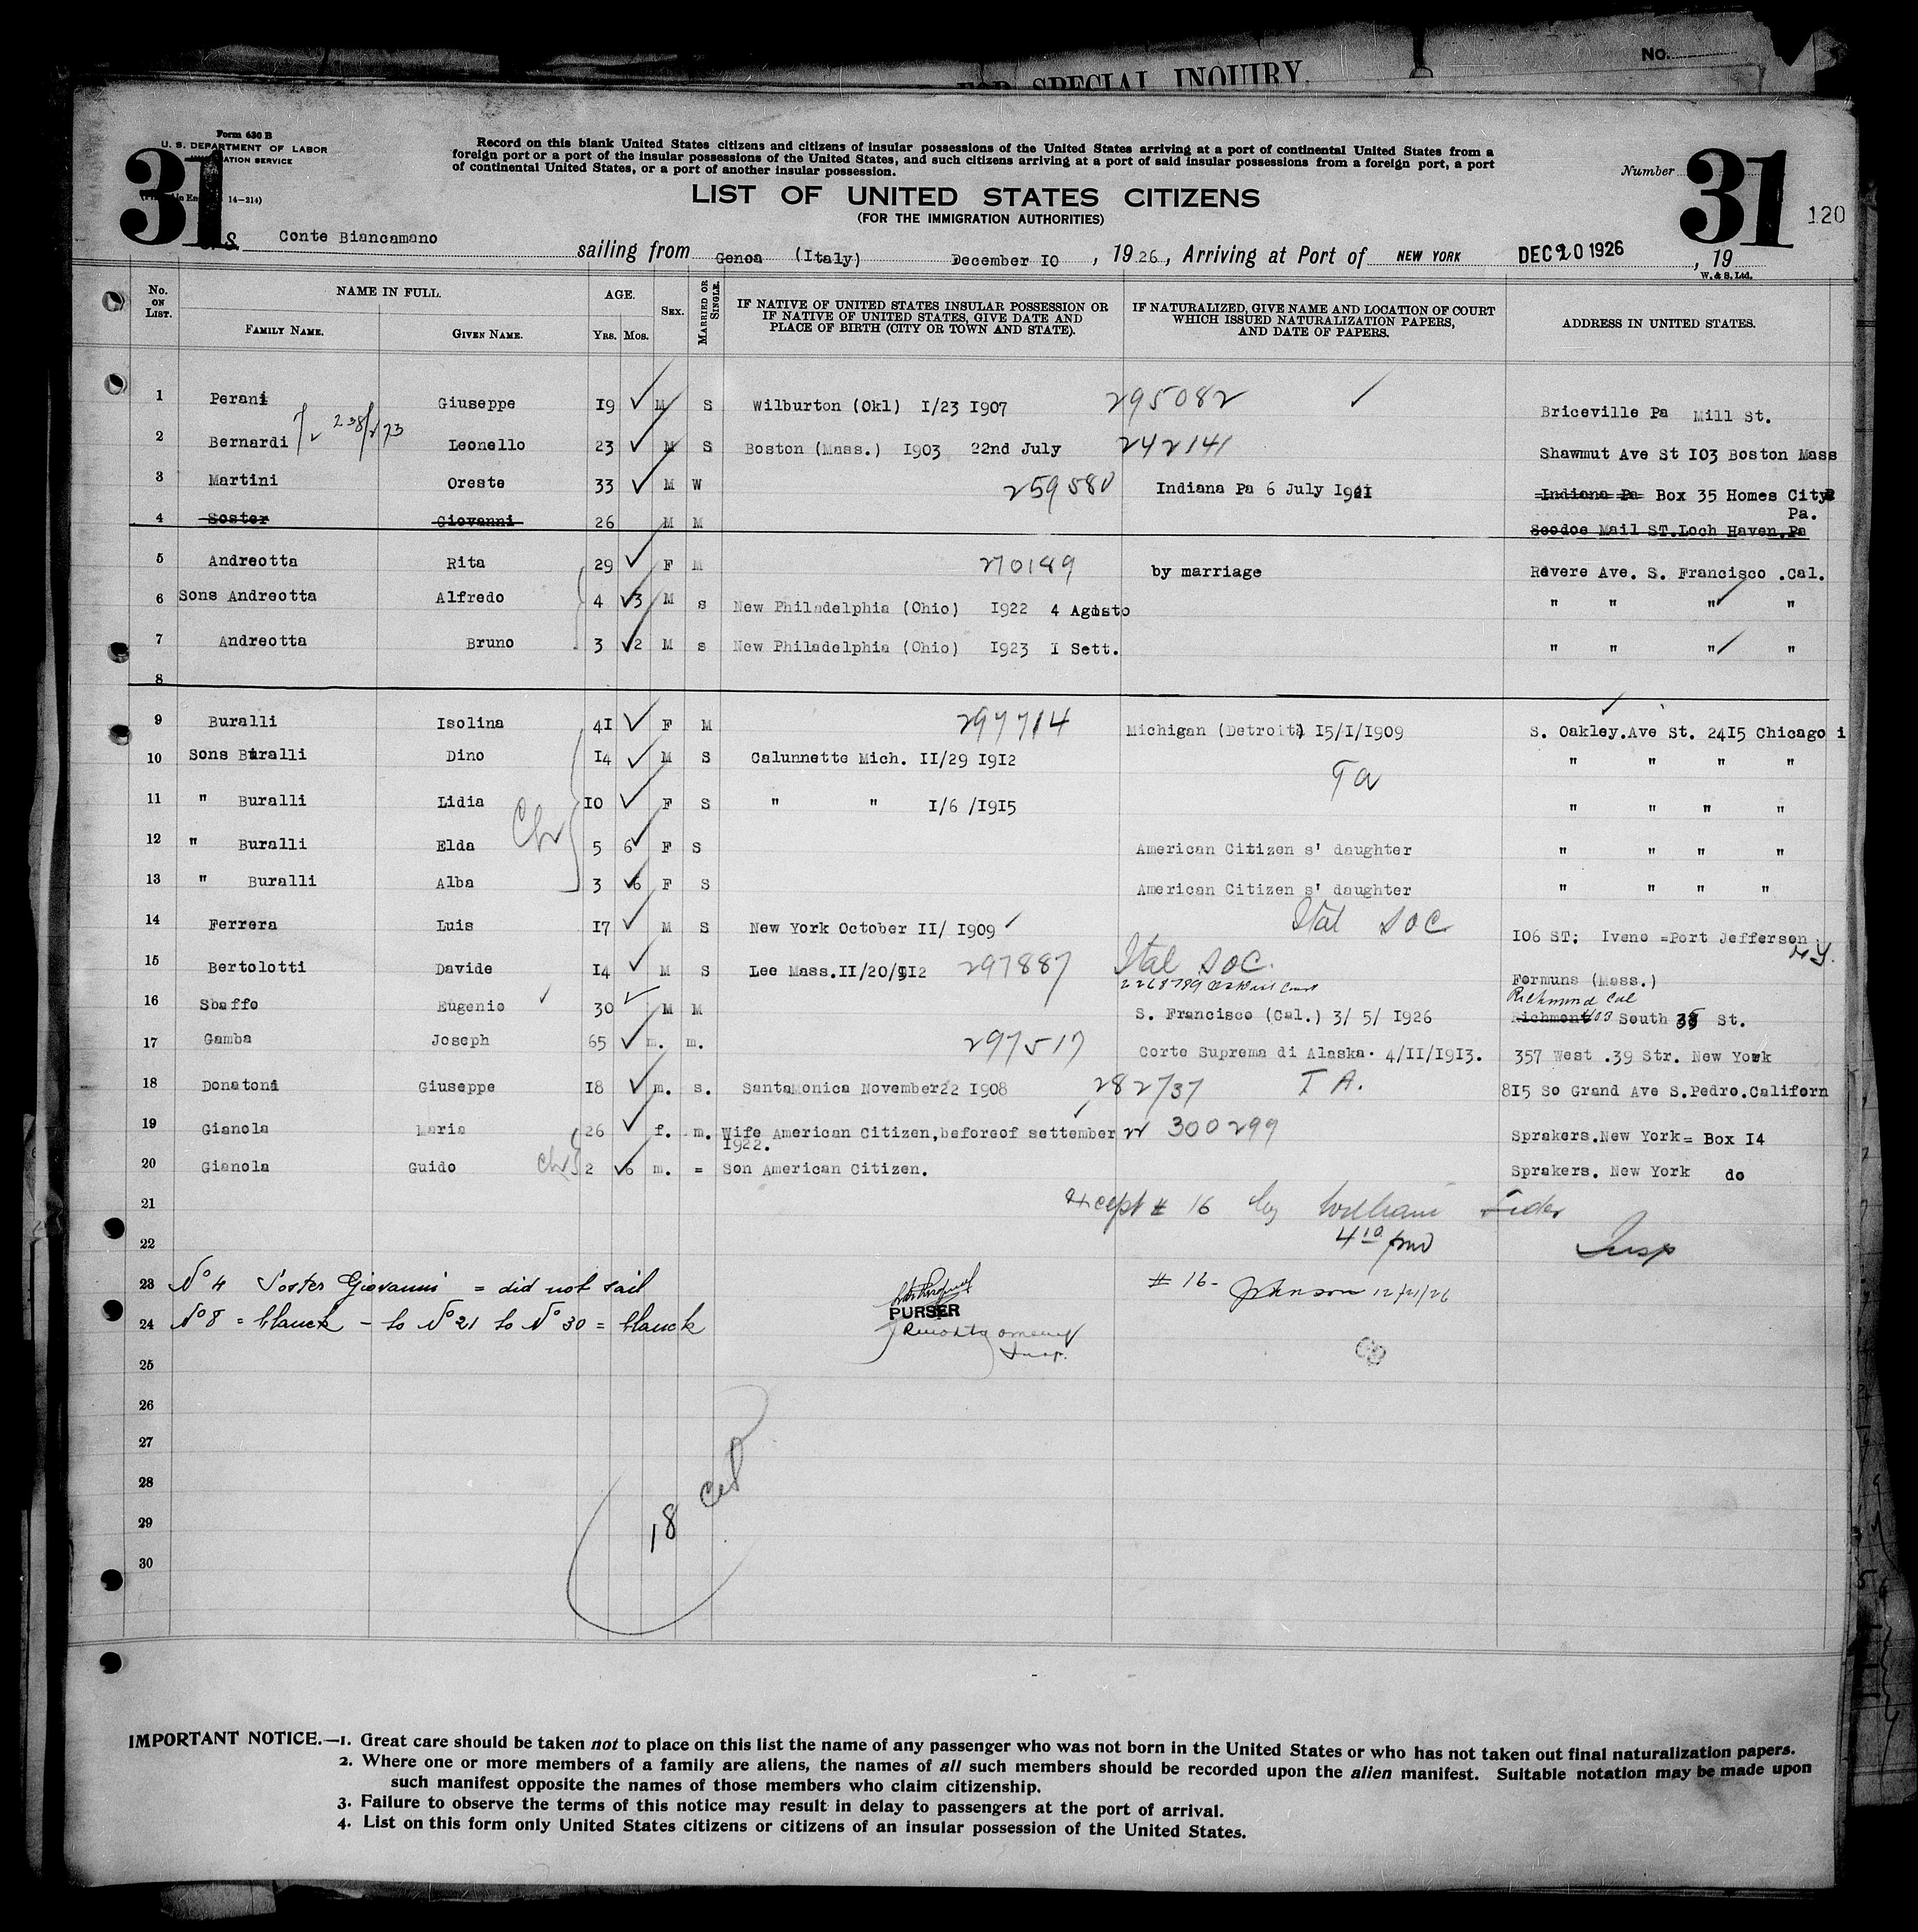 No.
FOR SPECIAL INQUIRY.
Form 630 B
U. S. DEPARTMENT OF LABOR
IMMIGRATION SERVICE
14—214)
31
Record on this blank United States citizens and citizens of insular possessions of the United States arriving at a port of continental United States from a
foreign port or a port of the insular possessions of the United States, and such citizens arriving at a port of said insular possessions from a foreign port, a port
of continental United States, or a port of another insular possession.
LIST OF UNITED STATES CITIZENS
(FOR THE IMMIGRATION AUTHORITIES)
Number
31
120
S.S. Conte Biancamano sailing from Genoa (Italy) December 10, 1926, Arriving at Port of NEW YORK DEC 20 1926, 19
W. & S. Ltd.
No. ON LIST. NAME IN FULL. FAMILY NAME. GIVEN NAME. AGE. YRS. MOS. SEX. MARRIED OR SINGLE. IF NATIVE OF UNITED STATES INSULAR POSSESSION OR IF NATIVE OF UNITED STATES, GIVE DATE AND PLACE OF BIRTH (CITY OR TOWN AND STATE). IF NATURALIZED, GIVE NAME AND LOCATION OF COURT WHICH ISSUED NATURALIZATION PAPERS, AND DATE OF PAPERS. ADDRESS IN UNITED STATES.
1 Perani Giuseppe 19 ✓ M S Wilburton (Okl) 1/23 1907 295082 ✓ Briceville Pa Mill St.
2 Bernardi Leonello 23 ✓ M S Boston (Mass.) 1903 22nd July 242141 Shawmut Ave St 103 Boston Mass
3 Martini Oreste 33 ✓ M W 259580 Indiana Pa 6 July 1921 Indiana Pa Box 35 Homes City
Pa.
4 Soster Giovanni 26 M M Scodoe Mail ST. Loch Haven. Pa
5 Andreotta Rita 29 ✓ F M 270189 by marriage Revere Ave. S. Francisco .Cal.
6 Sons Andreotta Alfredo 4 ✓3 M s New Philadelphia (Ohio) 1922 4 Agosto " " " "
7 Andreotta Bruno 3 ✓2 M s New Philadelphia (Ohio) 1923 1 Sett. " " " "
8
9 Buralli Isolina 41 ✓ F M 297714 Michigan (Detroit) 15/1/1909 S. Oakley.Ave St. 2415 Chicago i
10 Sons Buralli Dino 14 ✓ M S Calunnette Mich. 11/29 1912 " " " "
11 " Buralli Lidia 10 ✓ F S " " 1/6 /1915 " " " "
12 " Buralli Elda 5 6✓ F S American Citizen s' daughter " " " "
13 " Buralli Alba 3 ✓6 F S American Citizen s' daughter " " " "
14 Ferrera Luis 17 ✓ M S New York October 11/ 1909 ✓ Ital SOC 106 ST: Iveno =Port Jefferson
N.Y.
15 Bertolotti Davide 14 ✓ M S Lee Mass.11/20/912 297887 Ital SOC. Formuns (Mass.)
Richmond Cal
16 Sbaffo Eugenio ✓ 30 ✓ M M S. Francisco (Cal.) 3/ 5/ 1926 Richmont 403 South 38 St.
17 Gamba Joseph 65 ✓ m. m. 297517 Corte Suprema di Alaska. 4/11/1913. 357 West .39 Str. New York
18 Donatoni Giuseppe 18 ✓ m. s. SantaMonica November22 1908 282737 T A. 815 So Grand Ave S.Pedro.Californ
19 Gianola Maria 26 ✓ f. m. Wife American Citizen,beforeof settember 300299 Sprakers.New York= Box 14
1922.
20 Gianola Guido 2 ✓6 m. = Son American Citizen. Sprakers. New York do
21 except # 16 by William
22 4 10 pm Insp
23 No 4 Soster Giovanni = did not sail # 16 - Johnson 12/21/26
PURSER
24 No 8 = blanck - to No 21 to No 30 = blanck
Insp.
25
26
27
28
29
18
30
IMPORTANT NOTICE.—1. Great care should be taken not to place on this list the name of any passenger who was not born in the United States or who has not taken out final naturalization papers.
2. Where one or more members of a family are aliens, the names of all such members should be recorded upon the alien manifest. Suitable notation may be made upon
such manifest opposite the names of those members who claim citizenship.
3. Failure to observe the terms of this notice may result in delay to passengers at the port of arrival.
4. List on this form only United States citizens or citizens of an insular possession of the United States.